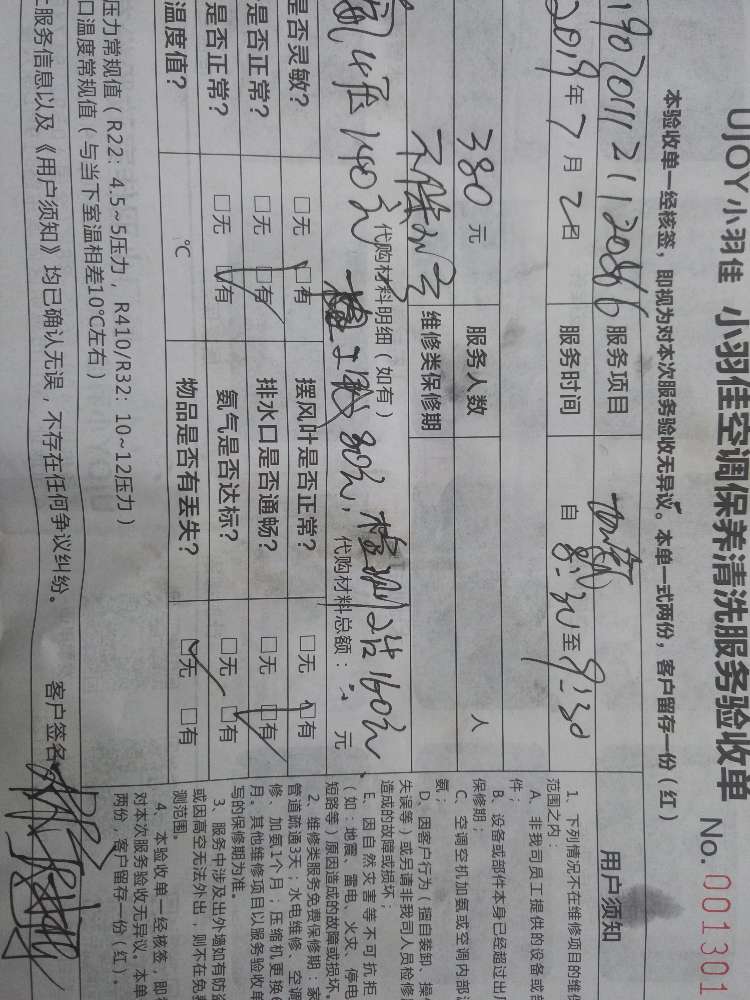 UJOY小羽佳 小羽佳空调保养清洗服务验收单 No. 001301
本验收单一经核签，即视为对本次服务验收无异议。本单一式两份，客户留存一份（红）
服务项目
用户须知
2019年7月2日 服务时间 自8:30至9:30
380元 服务人数 人
维修类保修期
代购材料明细（如有） 代购材料总额： 元
4 140元 80元， 160元
是否灵敏？ □无 □有 摆风叶是否正常？ □无 □有
是否正常？ □无 □有 排水口是否通畅？ □无 □有
是否正常？ □无 □有 氨气是否达标？ □无 □有
温度值？ ℃ 物品是否有丢失？ □无 □有
压力常规值（R22：4.5~5压力，R410/R32：10~12压力）
口温度常规值（与当下室温相差10℃左右）
服务信息以及《用户须知》均已确认无误，不存在任何争议纠纷。 客户签名
1、下列情况不在维修项目的维保
范围之内：
A、非我司员工提供的设备或部
件；
B、设备或部件本身已经超过出厂
保修期；
C、空调空机加氨或空调内部
氨；
D、因客户行为（擅自装卸、操
失误等）或另请非我司人员检修
造成的故障或损坏；
E、因自然灾害等不可抗拒
（如：地震、雷电、火灾、停电
短路等）原因造成的故障或损坏。
2、维修类服务免费保修期：家
管道疏通3天；水电维修、空调
修、加氨1个月；压缩机更换6
月。其他维修项目以服务验收单
写的保修期为准。
3、服务中涉及出外墙如有防盗
或因高空无法外出，则不在免费
测范围。
4、本验收单一经核签，即视
对本次服务验收无异议。本单
两份，客户留存一份（红）。